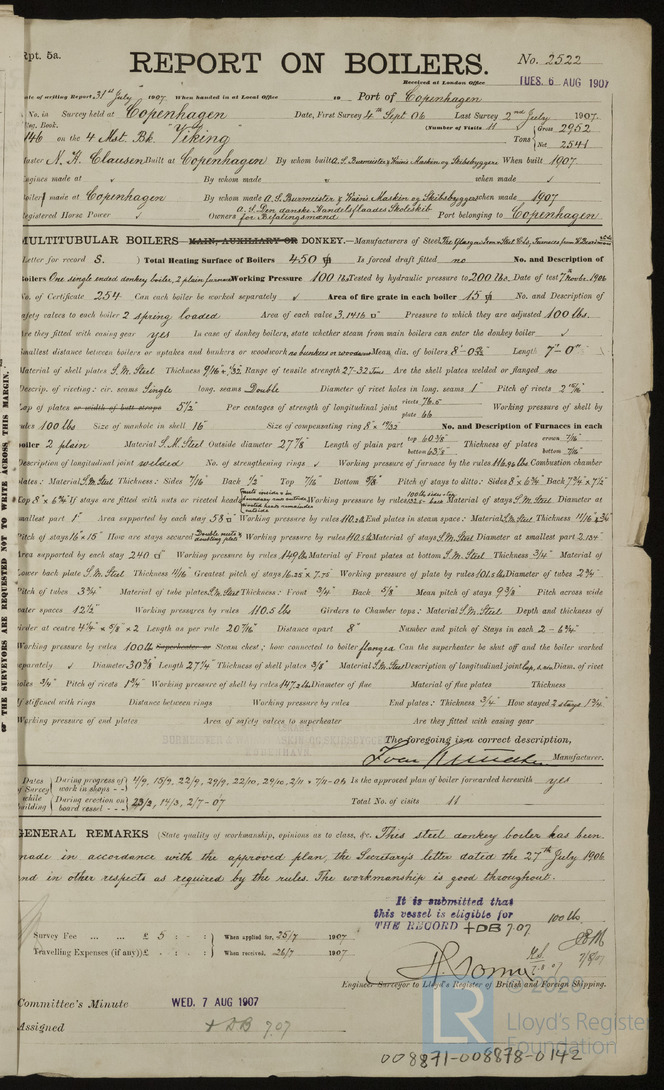 Rpt. 5a.
REPORT ON BOILERS.
No. 2522
Received at London Office TUES. 6 AUG 1907
Date of writing Report 31st July 1907 When handed in at Local Office 10 Port of Copenhagen
No. in Survey held at Copenhagen Date, First Survey 4th Sept 06 Last Survey 2nd July 1907.
Reg. Book. (Number of Visits 11)
146 on the 4 Mst. Bk. "Viking" Tons { Gross 2952 Net 2541
Master N. H. Clausen Built at Copenhagen By whom built A. S. Burmeister & Wain's Maskin og Skibsbyggeri When built 1907.
Engines made at By whom made when made
Boiler made at Copenhagen By whom made A. S. Burmeister & Wain's Maskin og Skibsbyggeri when made 1907
Registered Horse Power Owners A. S. Den danske Handelsflaades Skoleskib for Befalingsmænd Port belonging to Copenhagen
MULTITUBULAR BOILERS MAIN, AUXILIARY OR DONKEY.—Manufacturers of Steel The Glasgow Iron & Steel Co
Letter for record S. ) Total Heating Surface of Boilers 450 Is forced draft fitted no No. and Description of
Boilers One single ended donkey boiler, 2 plain furnaces Working Pressure 100 lbs Tested by hydraulic pressure to 200 lbs. Date of test 7th Novbr. 1906
No. of Certificate 254 Can each boiler be worked separately Area of fire grate in each boiler 15 No. and Description of
safety valves to each boiler 2 spring loaded Area of each valve 3.1416 Pressure to which they are adjusted 100 lbs.
Are they fitted with easing gear yes In case of donkey boilers, state whether steam from main boilers can enter the donkey boiler
Smallest distance between boilers or uptakes and bunkers or woodwork no bunkers or woodwork Mean dia. of boilers Length 7'-0"
Material of shell plates S. M. Steel Thickness Range of tensile strength 27-32 Tons Are the shell plates welded or flanged no
Descrip. of riveting: cir. seams Single long. seams Double Diameter of rivet holes in long. seams 1" Pitch of rivets
Lap of plates or width of butt straps 5 1/2" Per centages of strength of longitudinal joint rivets 76.5 plate 66 Working pressure of shell by
rules 100 lbs Size of manhole in shell 16" Size of compensating ring No. and Description of Furnaces in each
boiler 2 plain Material S. M. Steel Outside diameter 27 7/8" Length of plain part top bottom Thickness of plates crown 7/16" bottom 7/16"
Description of longitudinal joint welded No. of strengthening rings Working pressure of furnace by the rules Combustion chamber
plates: Material S. M. Steel Thickness: Sides 7/16" Back 1/2" Top 7/16" Bottom Pitch of stays to ditto: Sides 8" x 6 3/4" Back
Top 8" x 6 3/4" If stays are fitted with nuts or riveted heads Working pressure by rules Material of stays S. M. Steel Diameter at
smallest part 1" Area supported by each stay 58 Working pressure by rules End plates in steam space: Material S. M. Steel Thickness
Pitch of stays 16" x 15" How are stays secured Double nuts & doubling plates Working pressure by rules Material of stays S. M. Steel Diameter at smallest part
Area supported by each stay 240 Working pressure by rules 149 lbs Material of Front plates at bottom S. M. Steel Thickness 3/4" Material of
Lower back plate S. M. Steel Thickness Greatest pitch of stays 16.25" x 7.75" Working pressure of plate by rules Diameter of tubes 2 3/4"
Pitch of tubes 3 3/4" Material of tube plates S. M. Steel Thickness: Front 3/4" Back 5/8" Mean pitch of stays 9 3/8" Pitch across wide
water spaces 12 1/2" Working pressures by rules 110.5 lbs Girders to Chamber tops: Material S. M. Steel Depth and thickness of
girder at centre Length as per rule 20 7/16" Distance apart 8" Number and pitch of Stays in each 2 - 6 3/4"
Working pressure by rules 100 lb Superheater or Steam chest; how connected to boiler flanged Can the superheater be shut off and the boiler worked
separately Diameter 30 3/8" Length 27 1/4" Thickness of shell plates 3/8" Material S. M. Steel Description of longitudinal joint Diam. of rivet
holes 3/4" Pitch of rivets 1 3/4" Working pressure of shell by rules Diameter of flue Material of flue plates Thickness
If stiffened with rings Distance between rings Working pressure by rules End plates: Thickness 3/4" How stayed 2 stays 1 3/4"
Working pressure of end plates Area of safety valves to superheater Are they fitted with easing gear
The foregoing is a correct description,
Manufacturer.
Dates of Survey while building { During progress of work in shops - - 4/9, 15/9, 22/9, 29/9, 22/10, 29/10, 2/11 & 7/11-06 Is the approved plan of boiler forwarded herewith yes
{ During erection on board vessel - - - 23/2, 14/3, 2/7-07 Total No. of visits 11
GENERAL REMARKS (State quality of workmanship, opinions as to class, &c. This steel donkey boiler has been
made in accordance with the approved plan, the Secretary's letter dated the 27th July 1906
and in other respects as required by the rules. The workmanship is good throughout.
It is submitted that
this vessel is eligible for 100 lbs.
THE RECORD + DB 7.07
Survey Fee ... ... £ 5 : : } When applied for, 25/7 1907
Travelling Expenses (if any) £ : : } When received, 26/7 1907
7/8/07
Engineer Surveyor to Lloyd's Register of British and Foreign Shipping.
Committee's Minute WED. 7 AUG 1907
Assigned + DB 7.07
OF THE SURVEYORS ARE REQUESTED NOT TO WRITE ACROSS THIS MARGIN.
LR
© 2020
Lloyd's Register
Foundation
008871-008878-0142